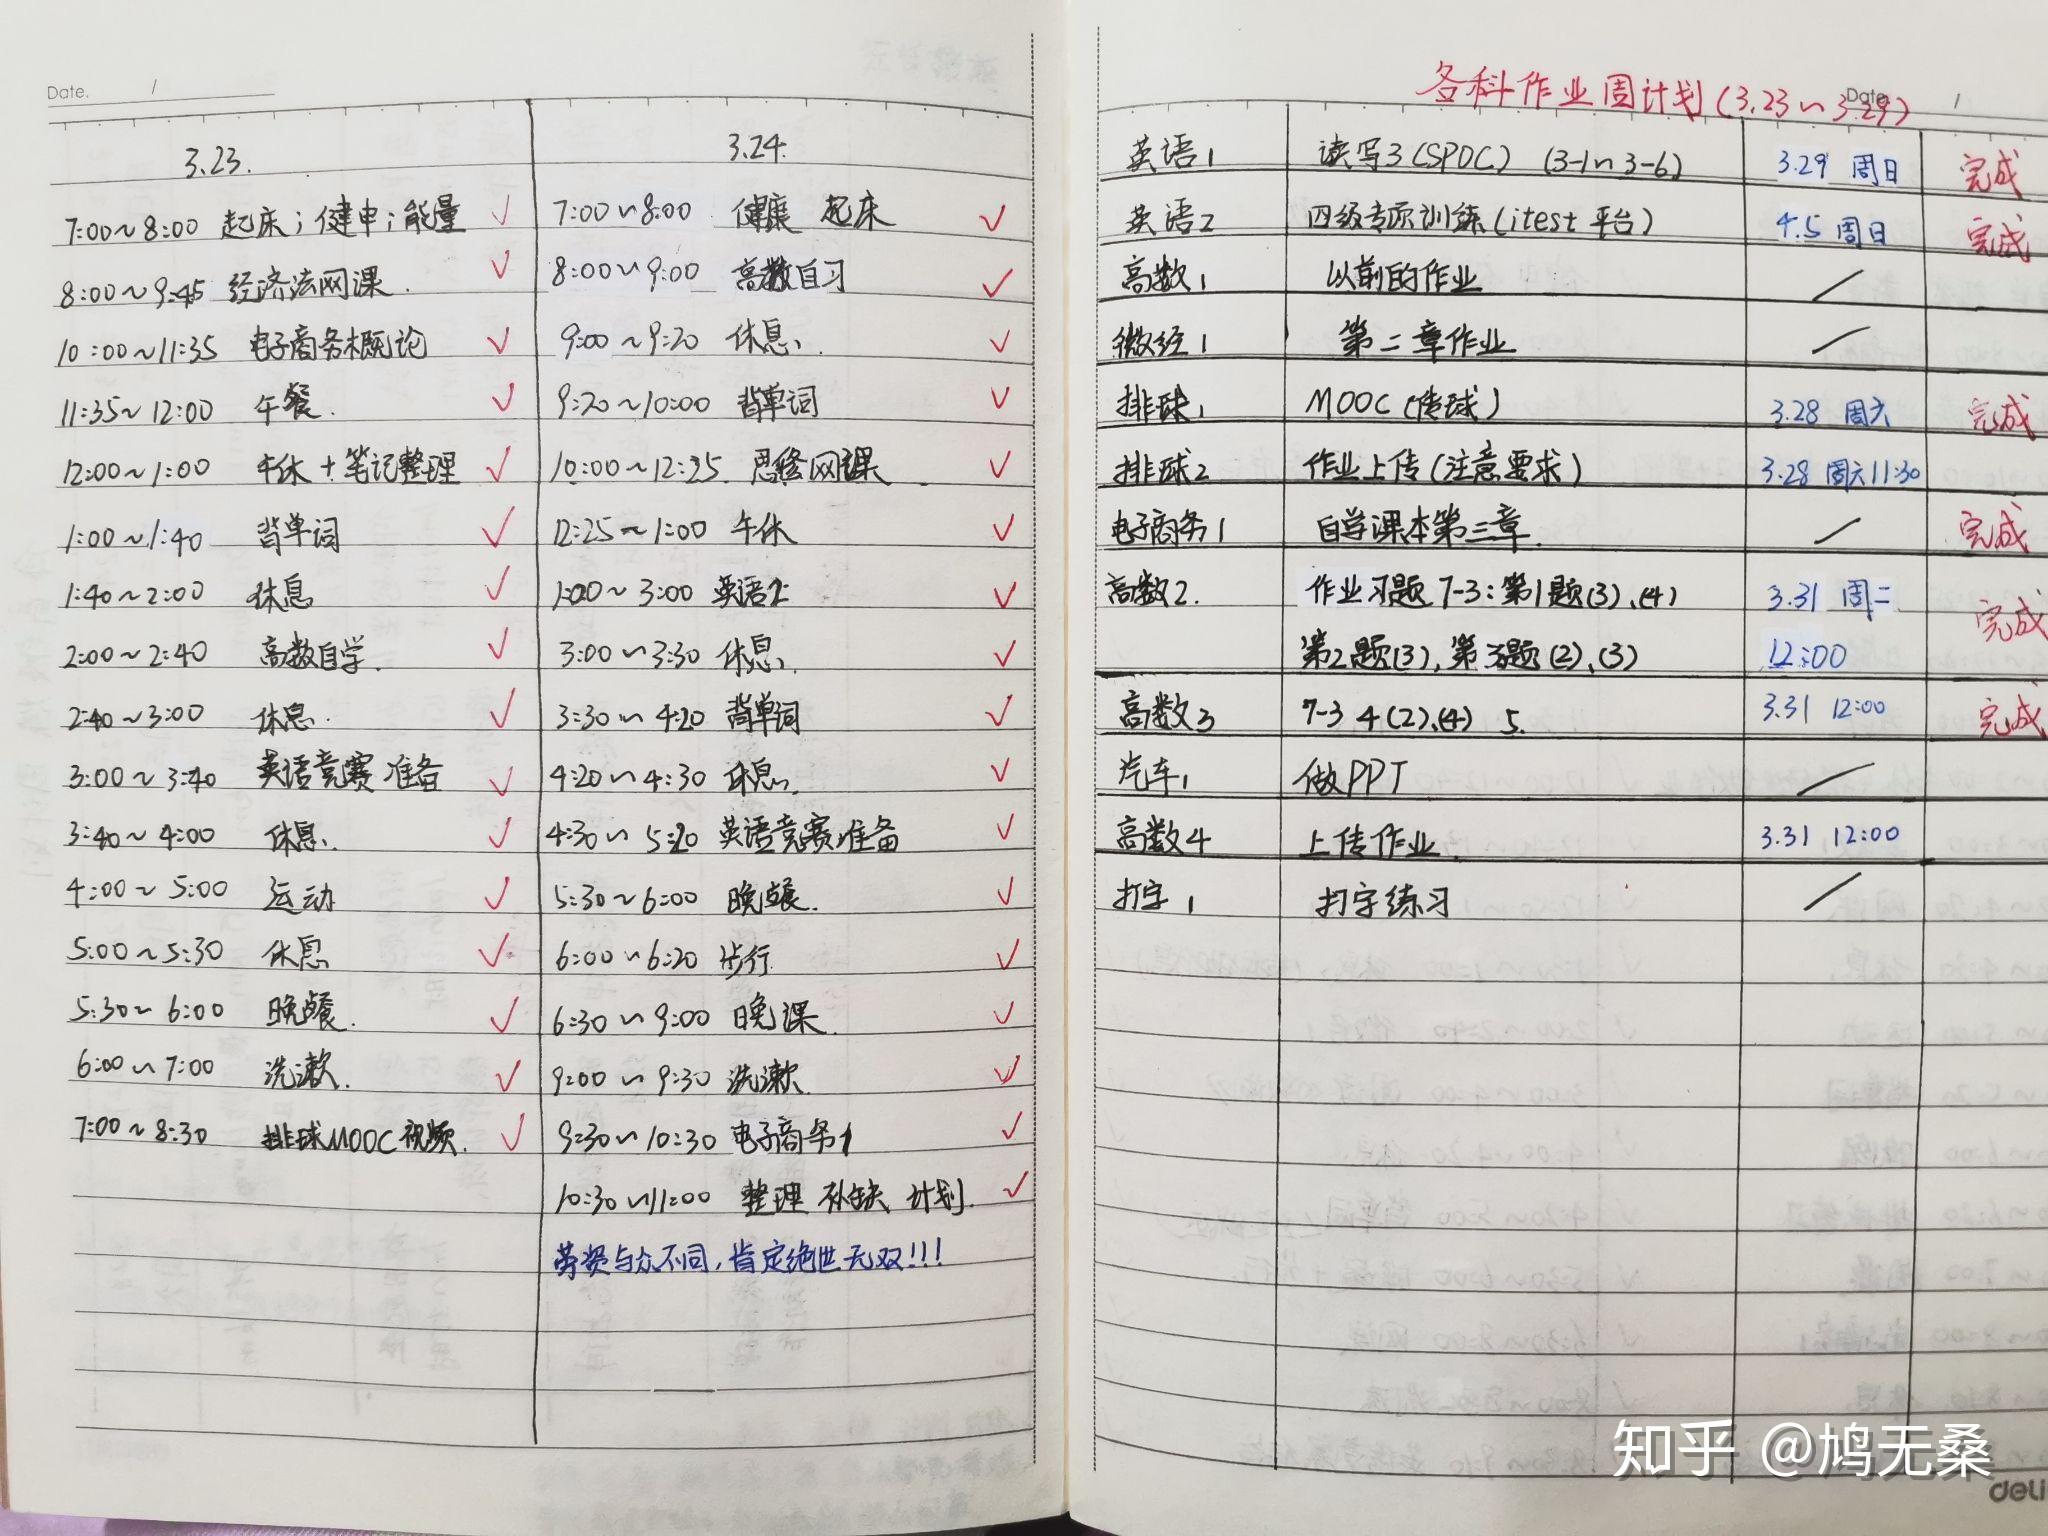 Date. /
3.23.
7:00~8:00 起床；健申；能量 ✓
8:00~9:45 经济法网课. ✓
10:00~11:35 电子商务概论 ✓
11:35~12:00 午餐. ✓
12:00~1:00 午休+笔记整理 ✓
1:00~1:40 背单词 ✓
1:40~2:00 休息 ✓
2:00~2:40 高数自学. ✓
2:40~3:00 休息. ✓
3:00~3:40 英语竞赛准备 ✓
3:40~4:00 休息. ✓
4:00~5:00 运动 ✓
5:00~5:30 休息 ✓
5:30~6:00 晚餐. ✓
6:00~7:00 洗漱. ✓
7:00~8:30 排球MOOC视频. ✓
3.24.
7:00~8:00 健康 起床 ✓
8:00~9:00 高数自习 ✓
9:00~9:20 休息. ✓
9:20~10:00 背单词 ✓
10:00~12:25. 思修网课. ✓
12:25~1:00 午休 ✓
1:00~3:00 英语2 ✓
3:00~3:30 休息. ✓
3:30~4:20 背单词 ✓
4:20~4:30 休息. ✓
4:30~5:20 英语竞赛准备 ✓
5:30~6:00 晚餐. ✓
6:00~6:20 步行 ✓
6:30~9:00 晚课. ✓
9:00~9:30 洗漱. ✓
9:30~10:30 电子商务1 ✓
10:30~11:00 整理 补缺 计划. ✓
与众不同，肯定绝世无双!!!
各科作业周计划(3.23~3.29)
Date. /
英语1 读写3(SPOC) (3-1~3-6) 3.29 周日 完成
英语2 四级专项训练(itest平台) 4.5 周日 完成
高数1 以前的作业 /
微经1 第二章作业 /
排球1 MOOC(传球) 3.28 周六 完成
排球2 作业上传(注意要求) 3.28 周六11:30
电子商务1 自学课本第三章. / 完成
高数2. 作业习题7-3:第1题(3)、(4) 3.31 周二 完成
第2题(3)、第3题(2)、(3) 12:00
高数3 7-3 4(2)、(4) 5. 3.31 12:00 完成
汽车1 做PPT /
高数4 上传作业. 3.31 12:00
打字1 打字练习 /
知乎 @鸠无桑
deli